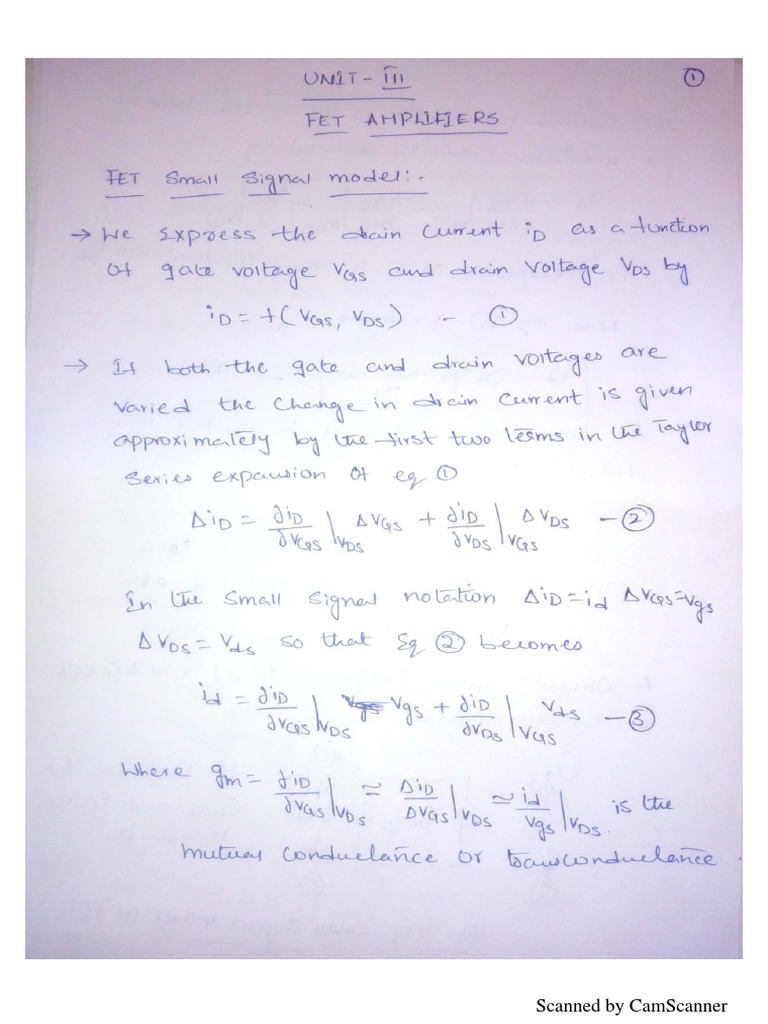 UNIT - III
①
FET AMPLIFIERS
FET Small Signal model:-
→ We Express the drain current iD as a function
of gate voltage VGS and drain voltage VDS by
iD = f(VGS, VDS) - ①
→ If both the gate and drain voltages are
varied the change in drain current is given
approximately by the first two terms in the Taylor
series expansion of eq ①
ΔiD = ∂iD/∂VGS |VDS ΔVGS + ∂iD/∂VDS |VGS ΔVDS - ②
In the small signal notation ΔiD = id ΔVGS = Vgs
ΔVDS = Vds so that Eq ② becomes
id = ∂iD/∂VGS |VDS Vgs + ∂iD/∂VDS |VGS Vds - ③
Where gm = ∂iD/∂VGS |VDS ≃ ΔiD/ΔVGS |VDS ≃ id/Vgs |VDS. is the
mutual conductance or transconductance
Scanned by CamScanner